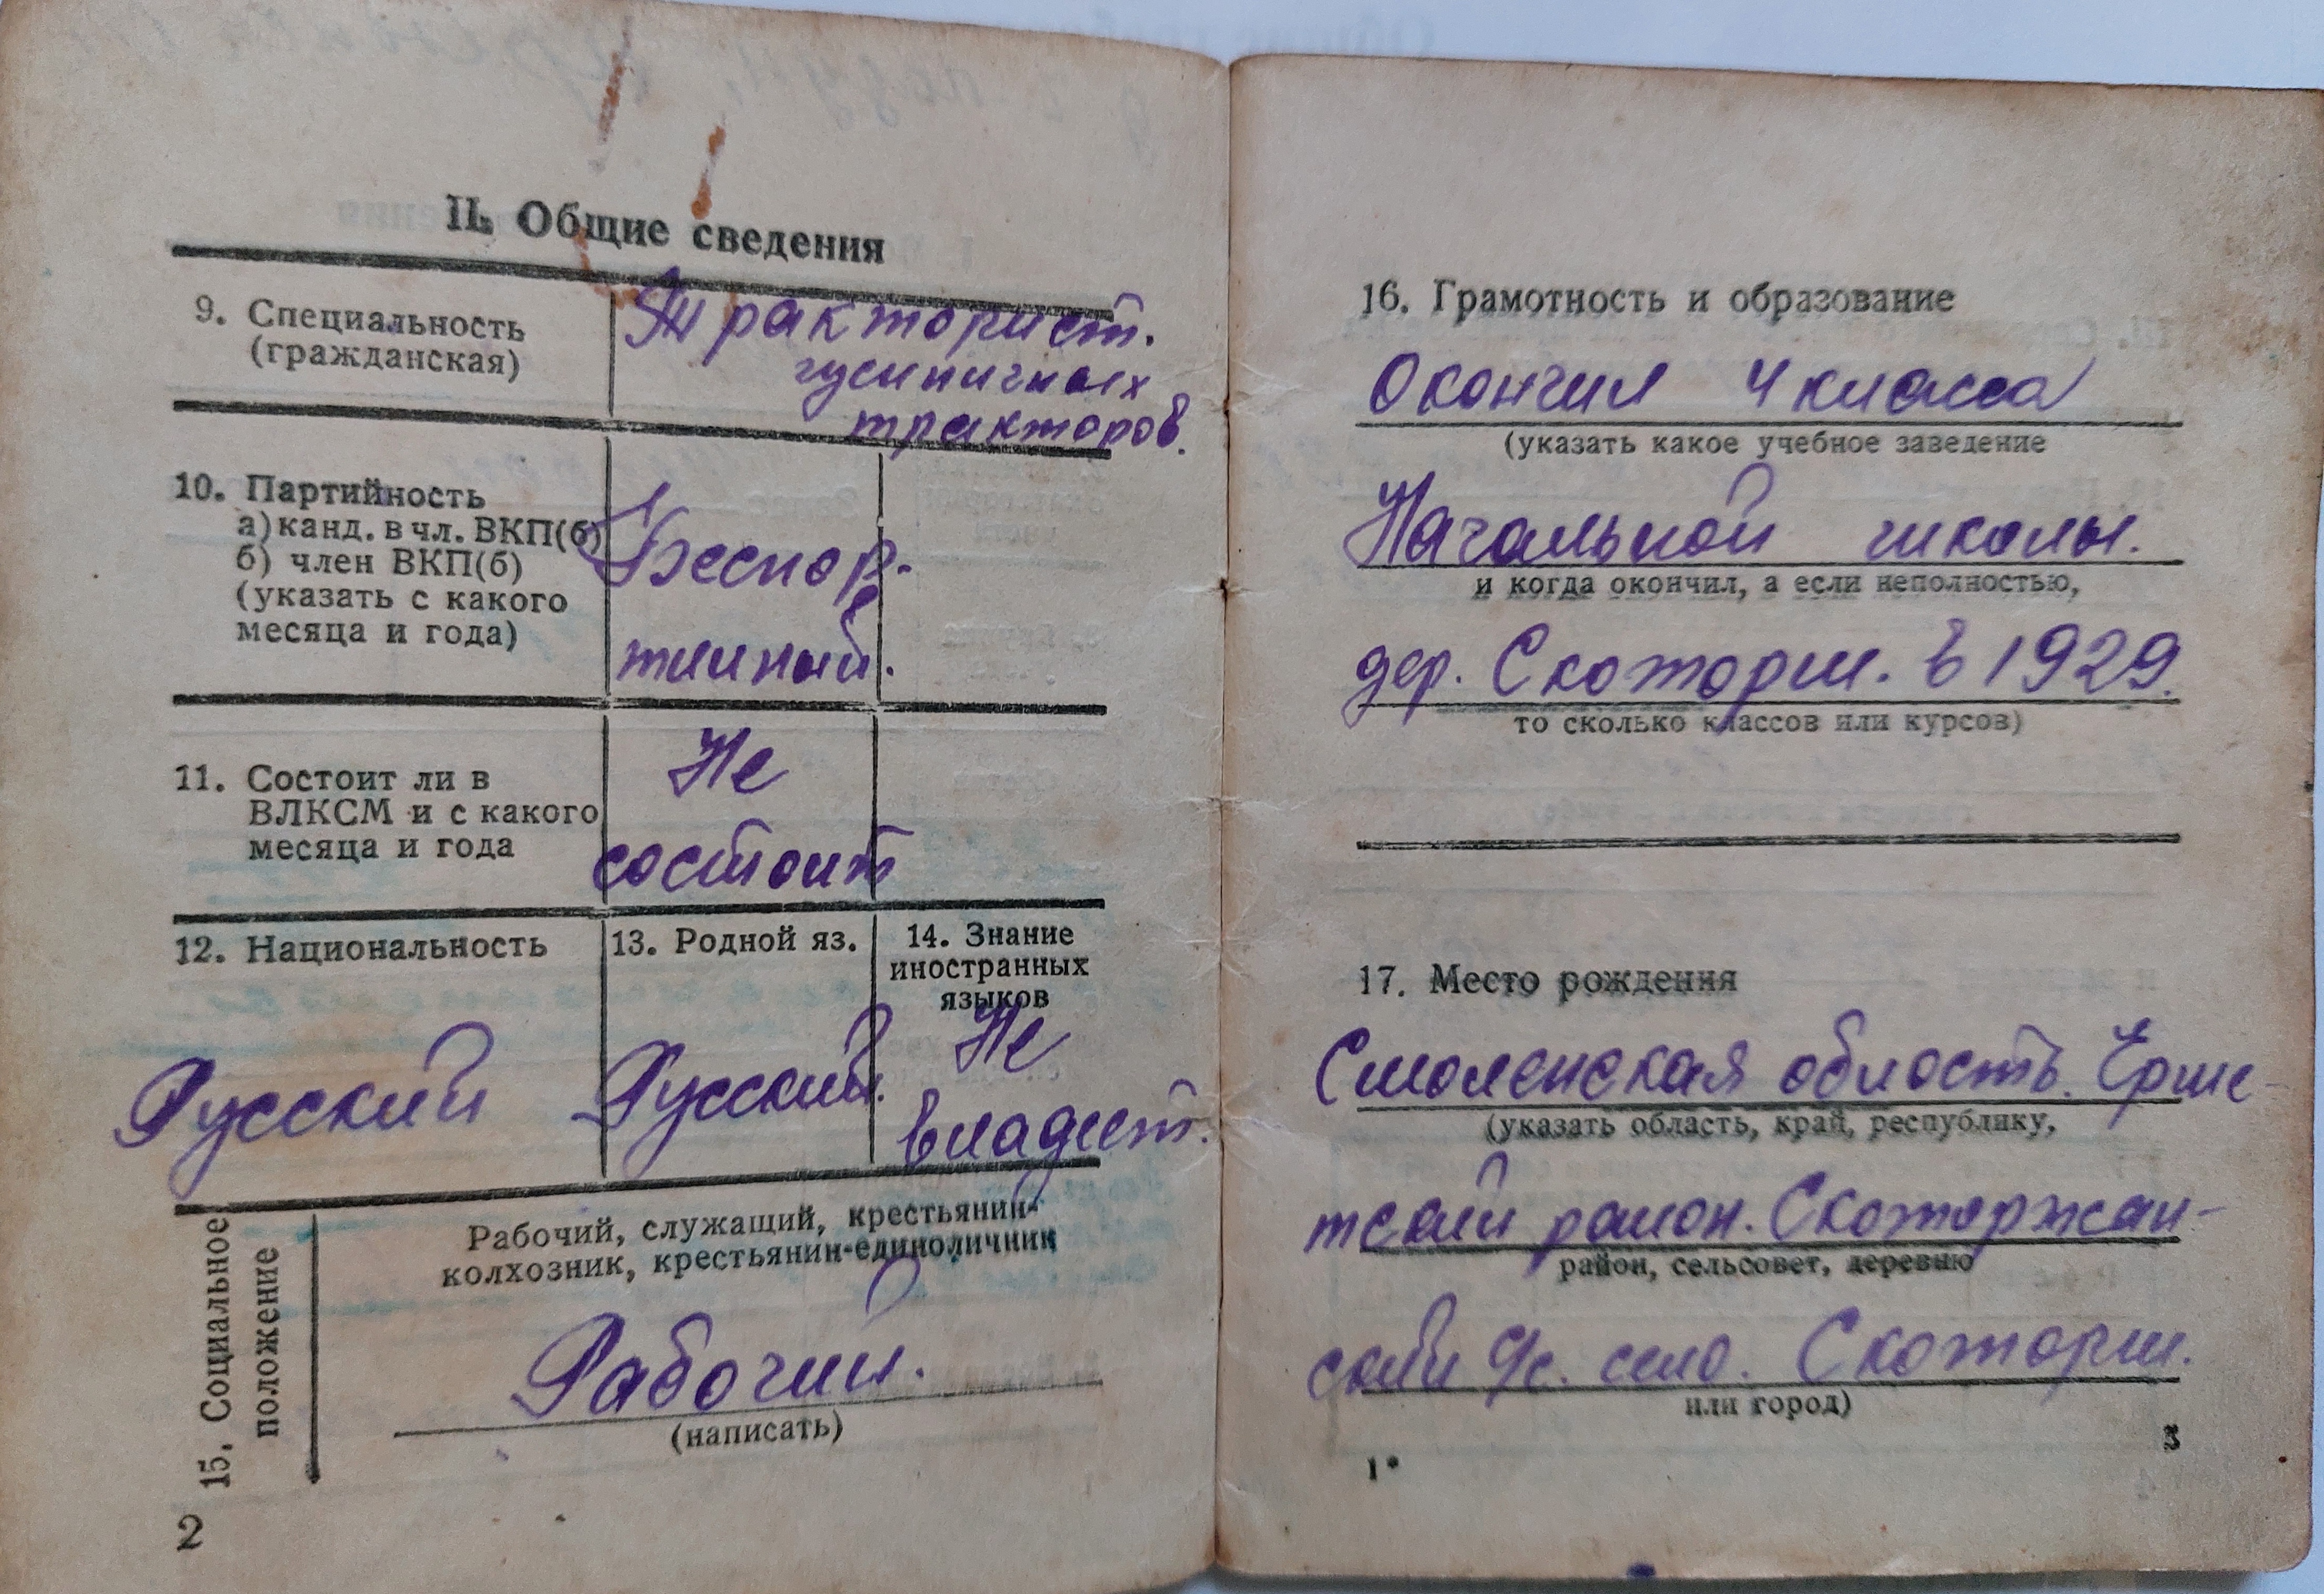 II. Общие сведения
9. Специальность
(гражданская)
Тракторист.
гусиничных
тракторов.
10. Партийность
а) канд. в чл. ВКП(б)
б) член ВКП(б)
(указать с какого
месяца и года)
Беспар-
тииный.
11. Состоит ли в
ВЛКСМ и с какого
месяца и года
Не
состоит
12. Национальность
Русский
13. Родной яз.
Русский.
14. Знание
иностранных
языков
Не
владеет.
15. Социальное
положение
Рабочий, служащий, крестьянин-
колхозник, крестьянин-единоличник
Рабочий.
(написать)
2
16. Грамотность и образование
Окончил 4 класса
(указать какое учебное заведение
Начальной школы.
и когда окончил, а если неполностью,
дер. Скоторш. в 1929.
то сколько классов или курсов)
17. Место рождения
Смоленская область. Ерше-
(указать область, край, республику,
район.
район, сельсовет, деревню
с. село. Скоторш.
или город)
1*
3